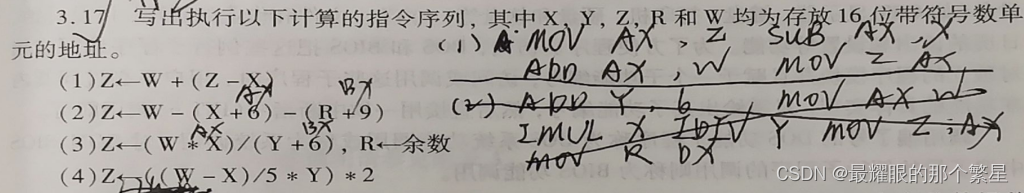 3.17 写出执行以下计算的指令序列,其中 X, Y, Z, R 和 W 均为存放 16 位带符号数单
元的地址。
(1) MOV AX, Z SUB AX, X
ADD AX, W MOV Z AX
(1) Z←W + (Z - X)
AX BX
(2) Z←W - (X + 6) - (R + 9)
(2) ADD Y, 6 MOV AX W
AX BX
(3) Z←(W * X)/(Y + 6), R←余数
IMUL X IDIV Y MOV Z, AX
MOV R DX
(4) Z←((W - X)/5 * Y) * 2
CSDN @最耀眼的那个繁星